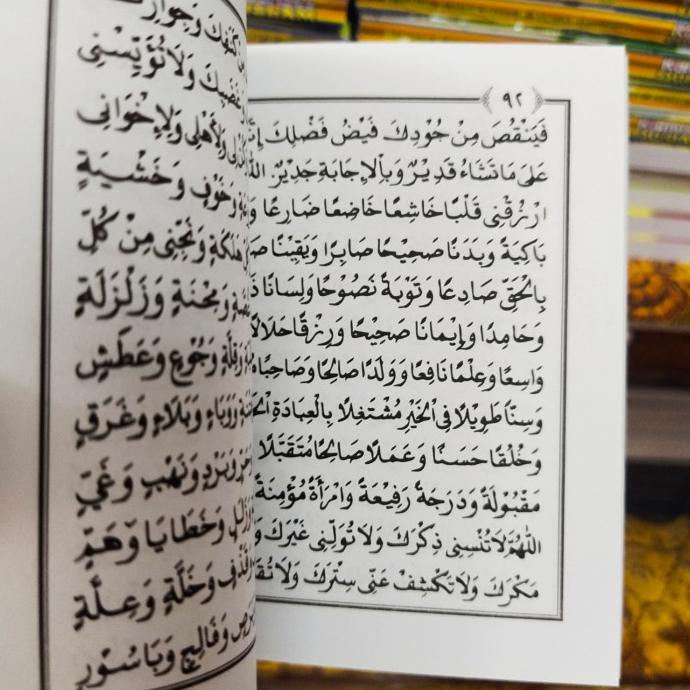 ٩٢
فَيَنْقُصَ مِنْ جُودِكَ فَيْضُ فَضْلِكَ
عَلَى مَا تَشَاءُ قَدِيْرٌ وَبِالْإِجَابَةِ جَدِيْرٌ
ارْزُقْنِى قَلْبًا خَاشِعًا خَاضِعًا ضَارِعًا
بَاكِيَةً وَبَدَنًا صَحِيْحًا صَابِرًا وَيَقِيْنًا
بِالْحَقِّ صَادِعًا وَتَوْبَةً نَصُوْحًا وَلِسَانًا
وَحَامِدًا وَإِيْمَانًا صَحِيْحًا وَرِزْقًا حَلَالًا
وَاسِعًا وَعِلْمًا نَافِعًا وَوَلَدًا صَالِحًا وَصَاحِبًا
وَسِنًّا طَوِيْلًا فِى الْخَيْرِ مُشْتَغِلًا بِالْعِبَادَةِ
وَخُلُقًا حَسَنًا وَعَمَلًا صَالِحًا مُتَقَبَّلًا
مَقْبُولَةً وَدَرَجَةً رَفِيْعَةً وَامْرَأَةً مُؤْمِنَةً
اللّٰهُمَّ لَا تُنْسِنِى ذِكْرَكَ وَلَا تُوَلِّنِى غَيْرَكَ
مَكْرَكَ وَلَا تَكْشِفْ عَنِّى سِتْرَكَ وَلَا
وَلَا تُؤَيِّسْنِى
وَلِأَهْلِى وَلِإِخْوَانِى
وَخَوْفٍ وَخَشْيَةٍ
هَلَكَةٍ وَنَجِّنِى مِنْ كُلِّ
وَمِحْنَةٍ وَزَلْزَلَةٍ
وَقِلَّةٍ وَجُوْعٍ وَعَطَشٍ
وَوَبَاءٍ وَبَلَاءٍ وَغَرَقٍ
وَبَرْدٍ وَنَهْبٍ وَغَيٍّ
وَزَلَلٍ وَخَطَايَا وَهَمٍّ
وَخَلَّةٍ وَعِلَّةٍ
وَفَالِجٍ وَبَاسُوْرٍ